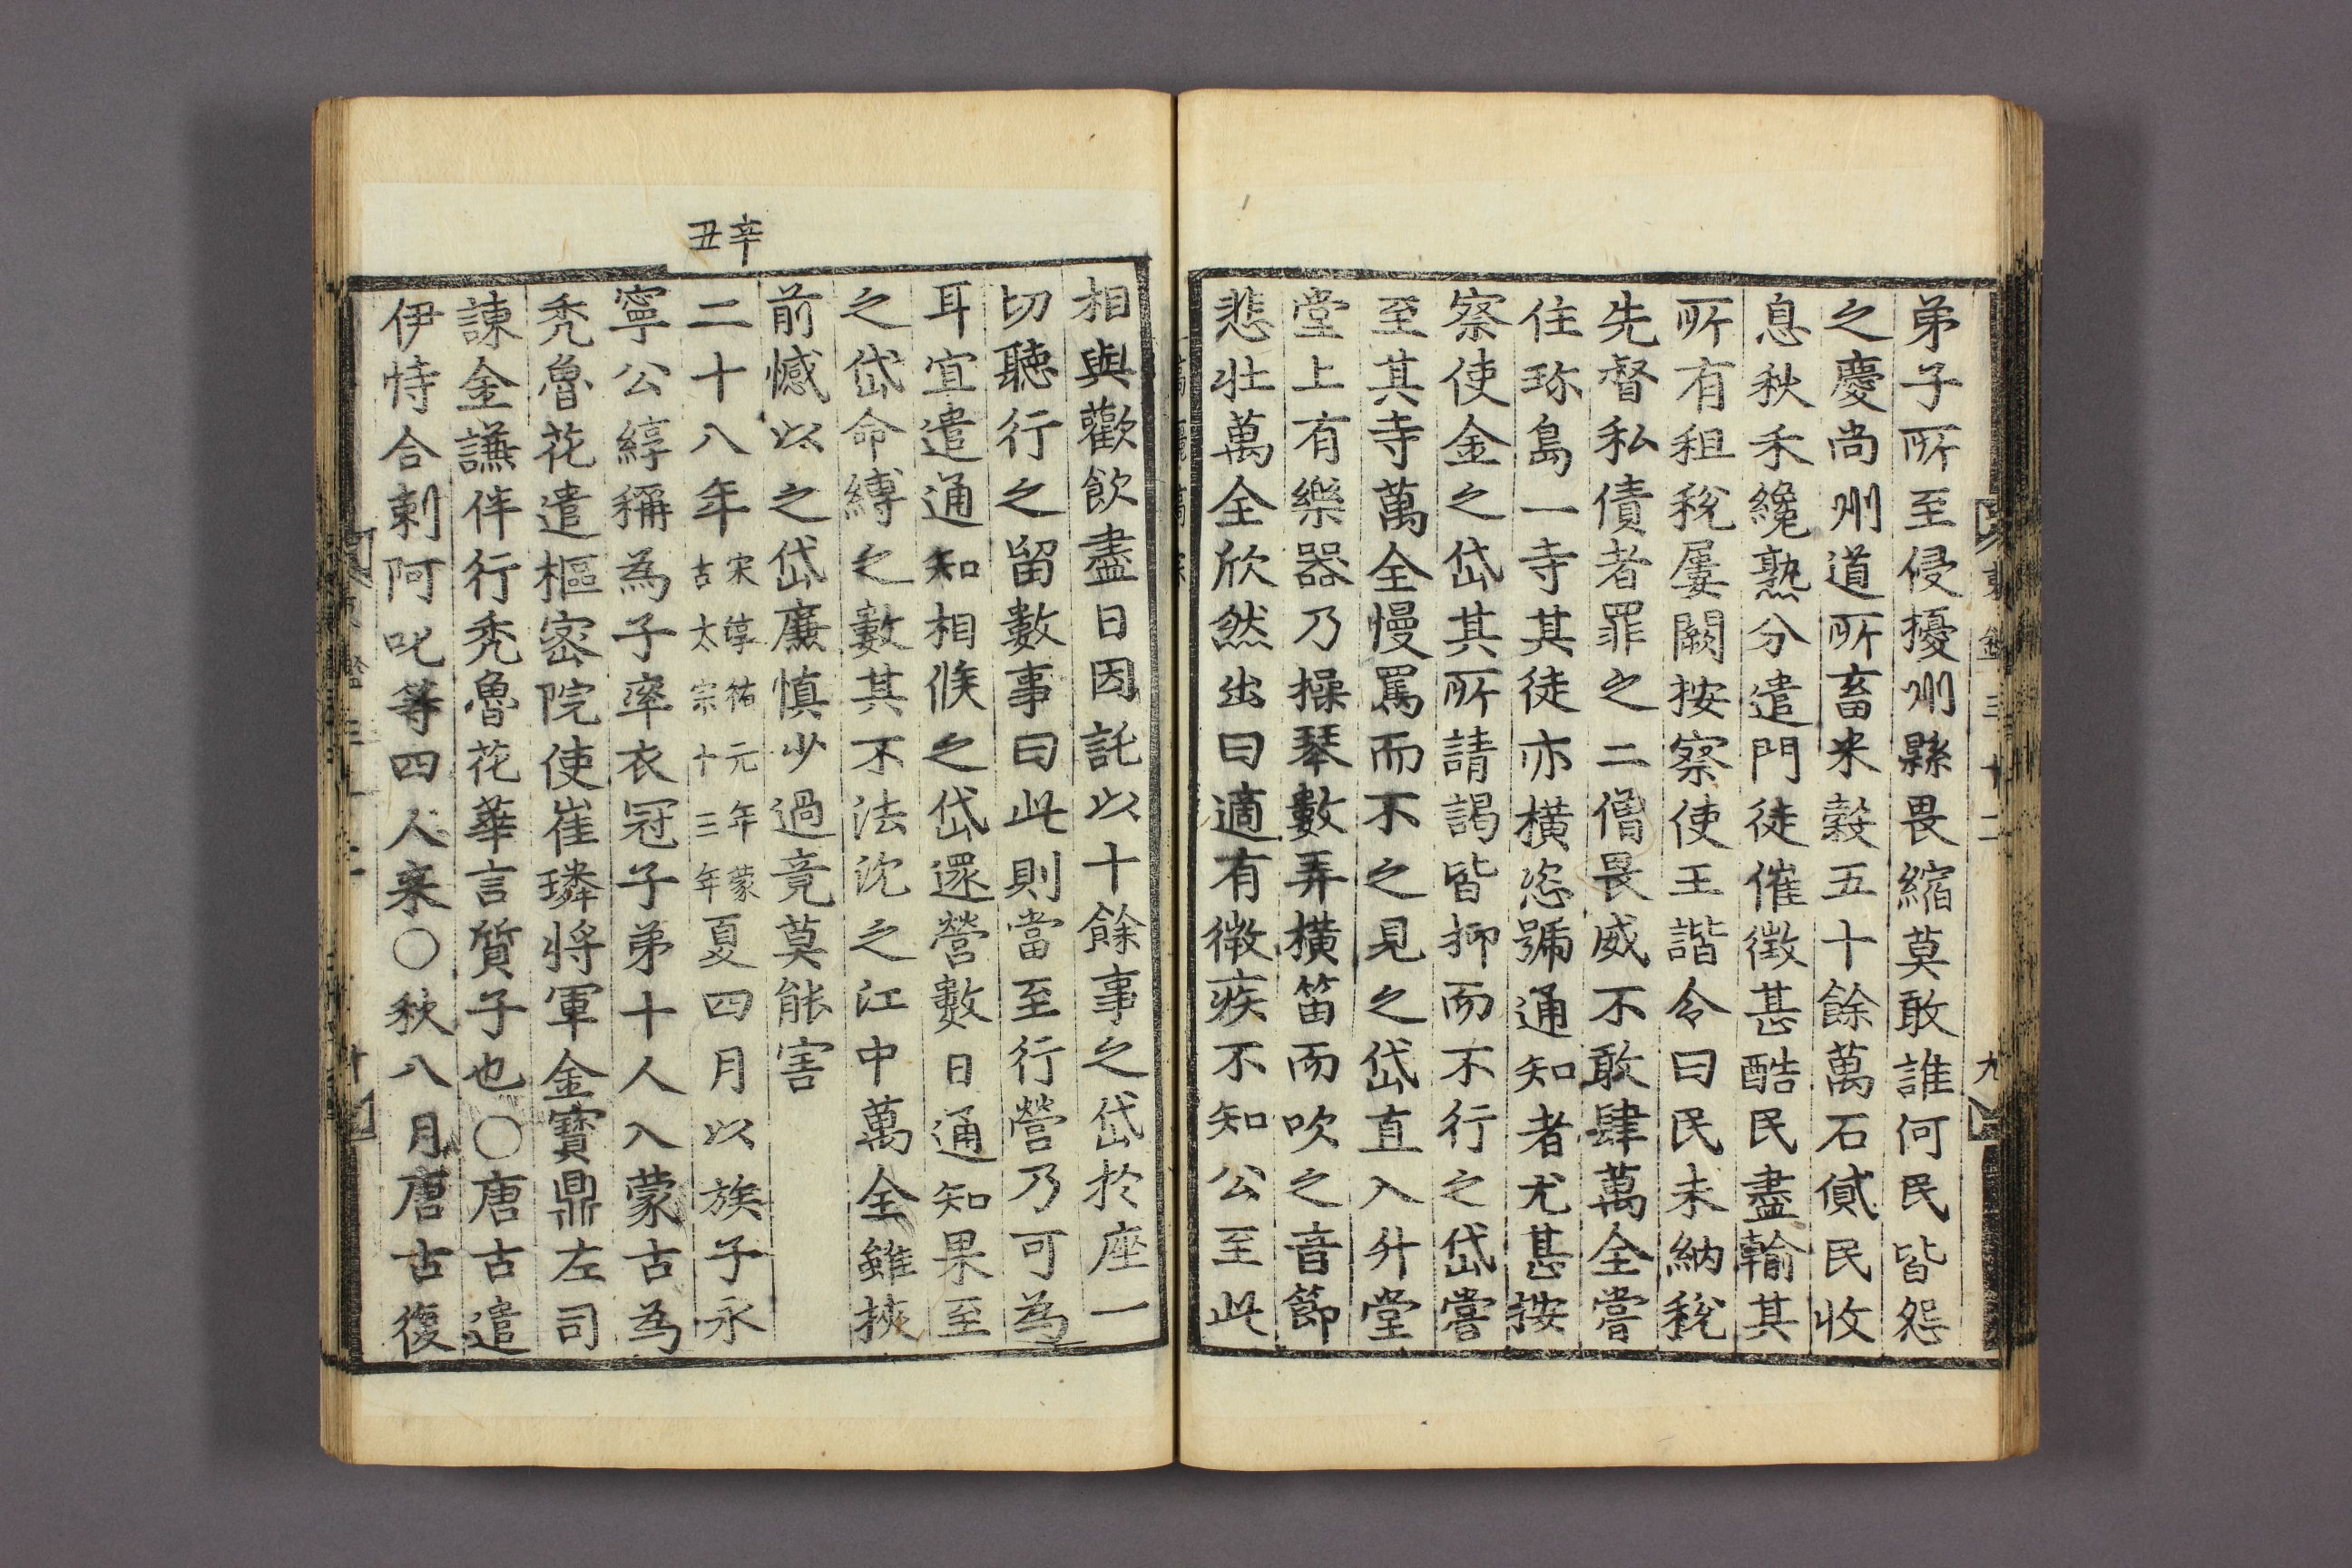 弟子所至侵擾州縣畏縮莫敢誰何民皆怨
之慶尚州道所畜米穀五十餘萬石貸民收
息秋禾纔熟分遣門徒催徵甚酷民盡輸其
所有租稅屢闕按察使王諧令曰民未納稅
先督私債者罪之二僧畏威不敢肆萬全嘗
住珎島一寺其徒亦橫恣號通知者尤甚按
察使金之岱其所請謁皆抑而不行之岱嘗
至其寺萬全慢罵而不之見之岱直入升堂
堂上有樂器乃操琴數弄橫笛而吹之音節
悲壯萬全欣然出曰適有微疾不知公至此
相與歡飲盡日因託以十餘事之岱於座一
切聽行之留數事曰此則當至行營乃可為
耳宜遣通知相候之岱還營數日通知果至
之岱命縛之數其不法沈之江中萬全雖挾
前憾以之岱廉慎少過竟莫能害
辛丑
二十八年宋淳祐元年蒙古太宗十三年夏四月以族子永
寧公綧稱為子率衣冠子弟十人入蒙古為
禿魯花遣樞密院使崔璘將軍金寶鼎左司
諫金謙伴行禿魯花華言質子也○唐古遣
伊恃合剌阿叱等四人來○秋八月唐古復